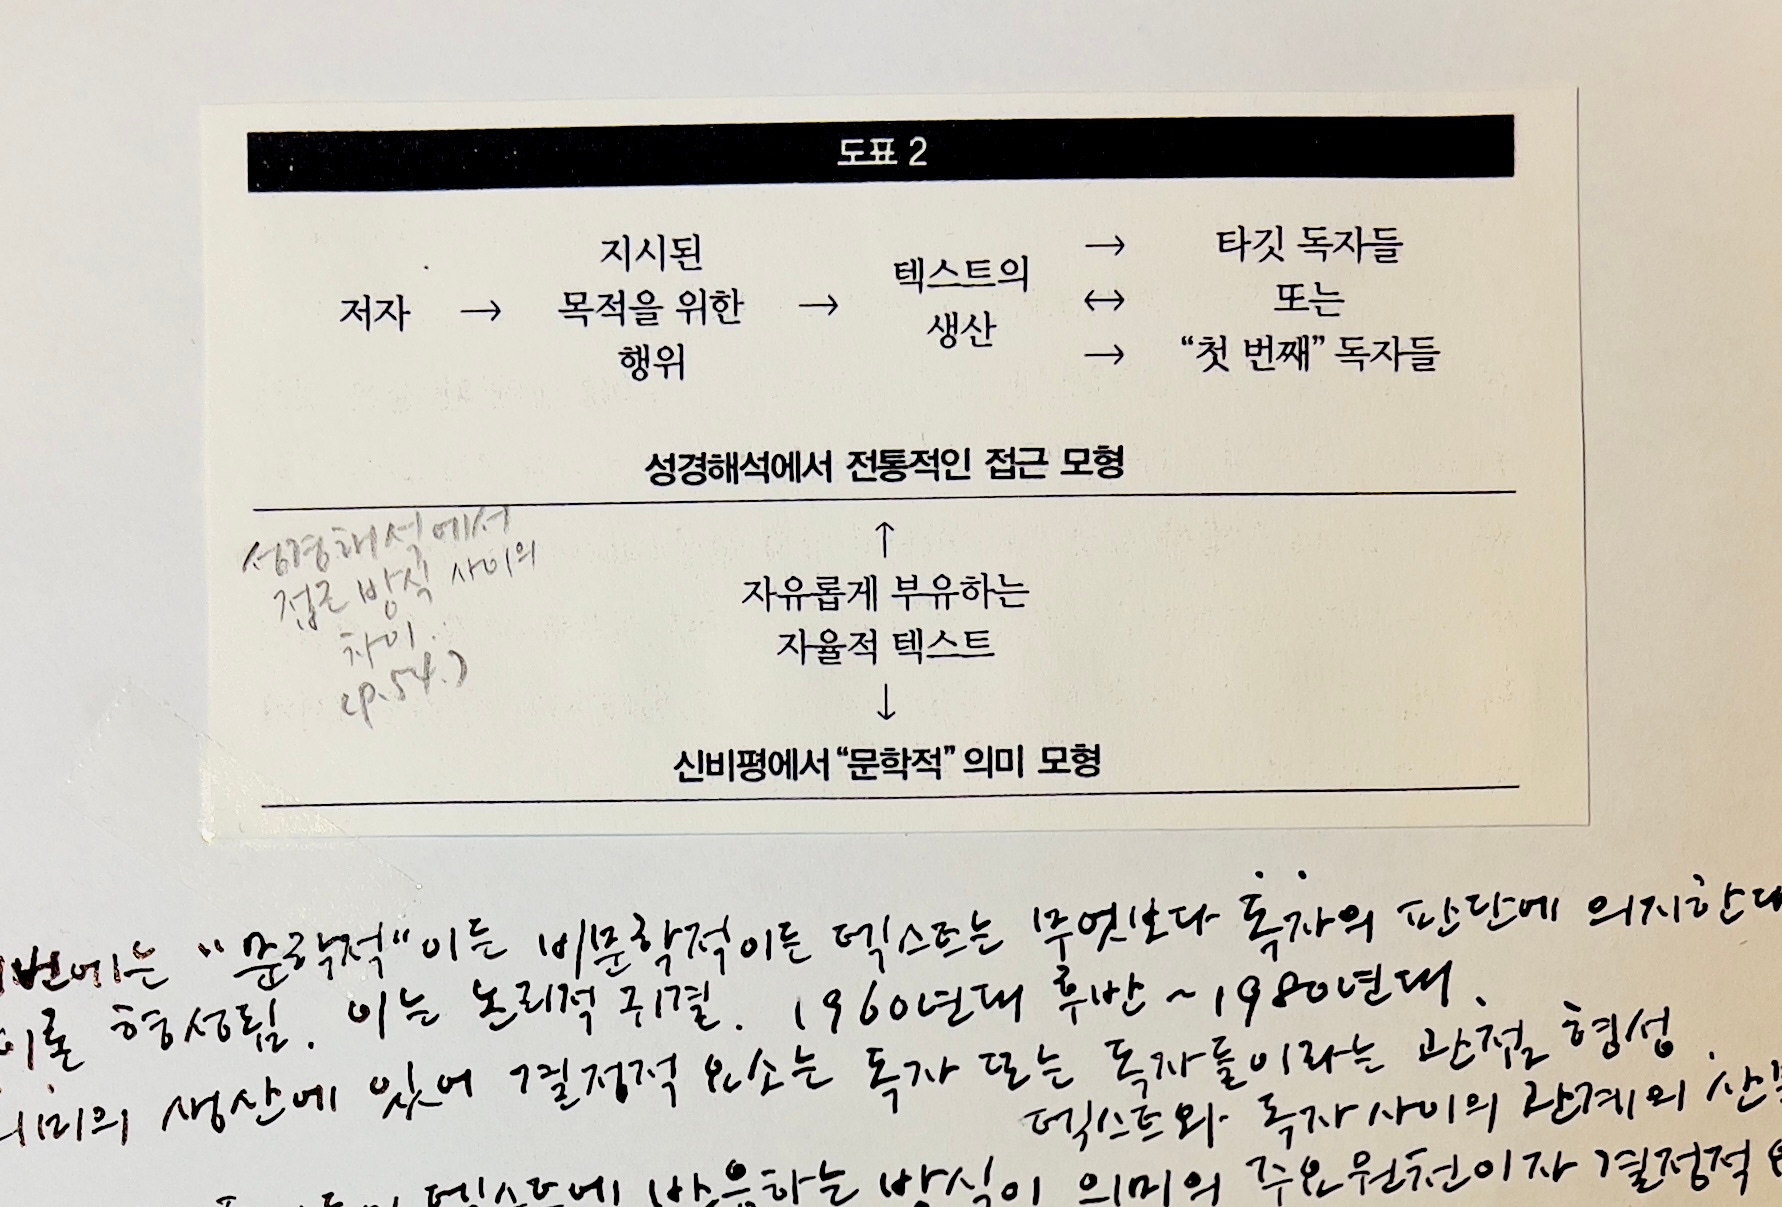 도표 2
저자 → 지시된 목적을 위한 행위 → 텍스트의 생산 → ↔ → 타깃 독자들 또는 “첫 번째” 독자들
성경해석에서 전통적인 접근 모형
성경해석에서
접근 방식 사이의
차이.
(p.54.)
↑
자유롭게 부유하는
자율적 텍스트
↓
신비평에서 “문학적” 의미 모형
번에는 “문학적”이든 비문학적이든 텍스트는 무엇보다 독자의 판단에 의지한다
이론 형성됨. 이는 논리적 귀결. 1960년대 후반 ~ 1980년대.
의미의 생산에 있어 결정적 요소는 독자 또는 독자들이라는 관점 형성.
텍스트와 독자 사이의 관계의
텍스트에 반응하는 방식이 의미의 주요원천이자 결정적